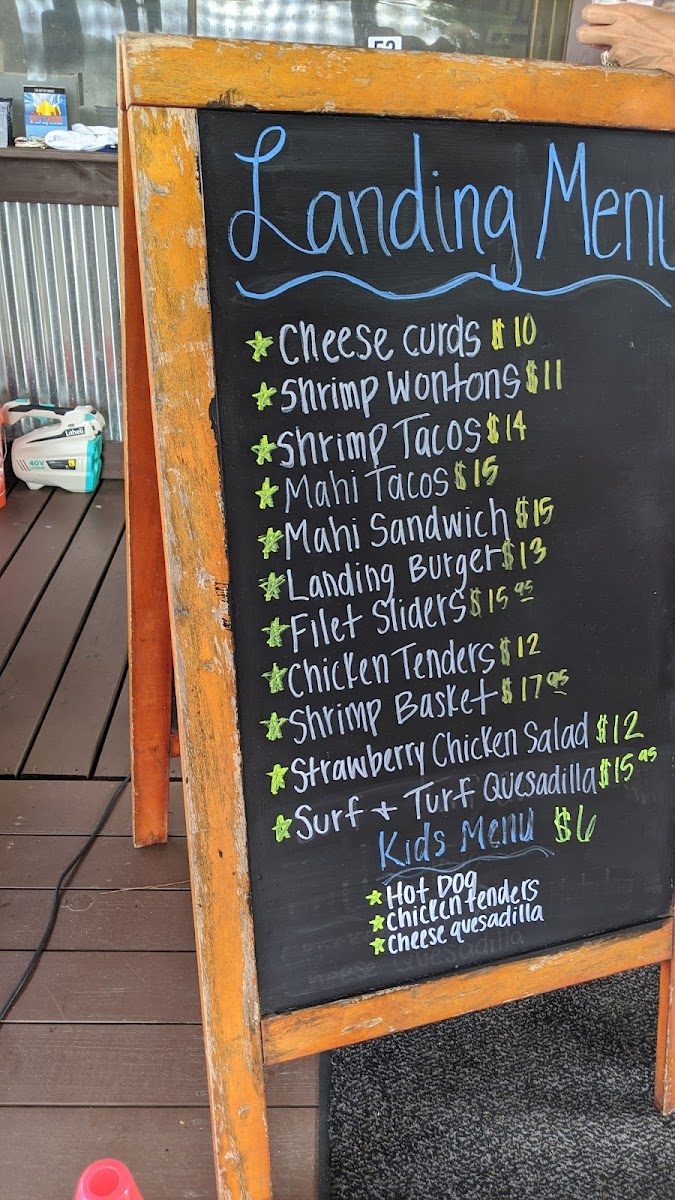 52
Landing Menu
Cheese Curds $10
Shrimp Wontons $11
Shrimp Tacos $14
Mahi Tacos $15
Mahi Sandwich $15
Landing Burger $13
Filet Sliders $15 95
Chicken Tenders $12
Shrimp Basket $17 95
Strawberry Chicken Salad $12
Surf + Turf Quesadilla $15 95
Kids Menu $6
Hot Dog
Chicken tenders
Cheese quesadilla
Litheli
40V